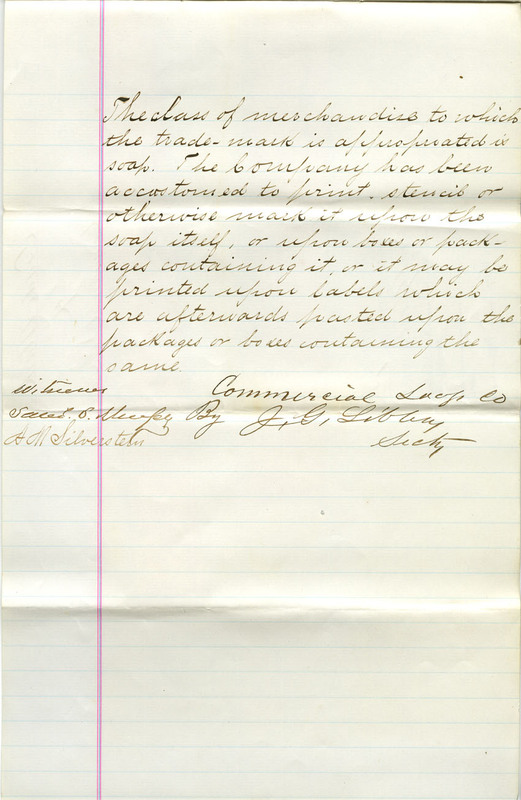 The class of merchandise to which
the trade-mark is appropriated is
soap. The Company has been
accostomed to print, stencil or
otherwise mark it upon the
soap itself, or upon boxes or pack-
ages containing it, or it may be
printed upon labels which
are afterwards pasted upon the
packages or boxes containing the
same.
Witnesses Commercial Soap Co
By J. G. Libby
A H Silverstein Secty